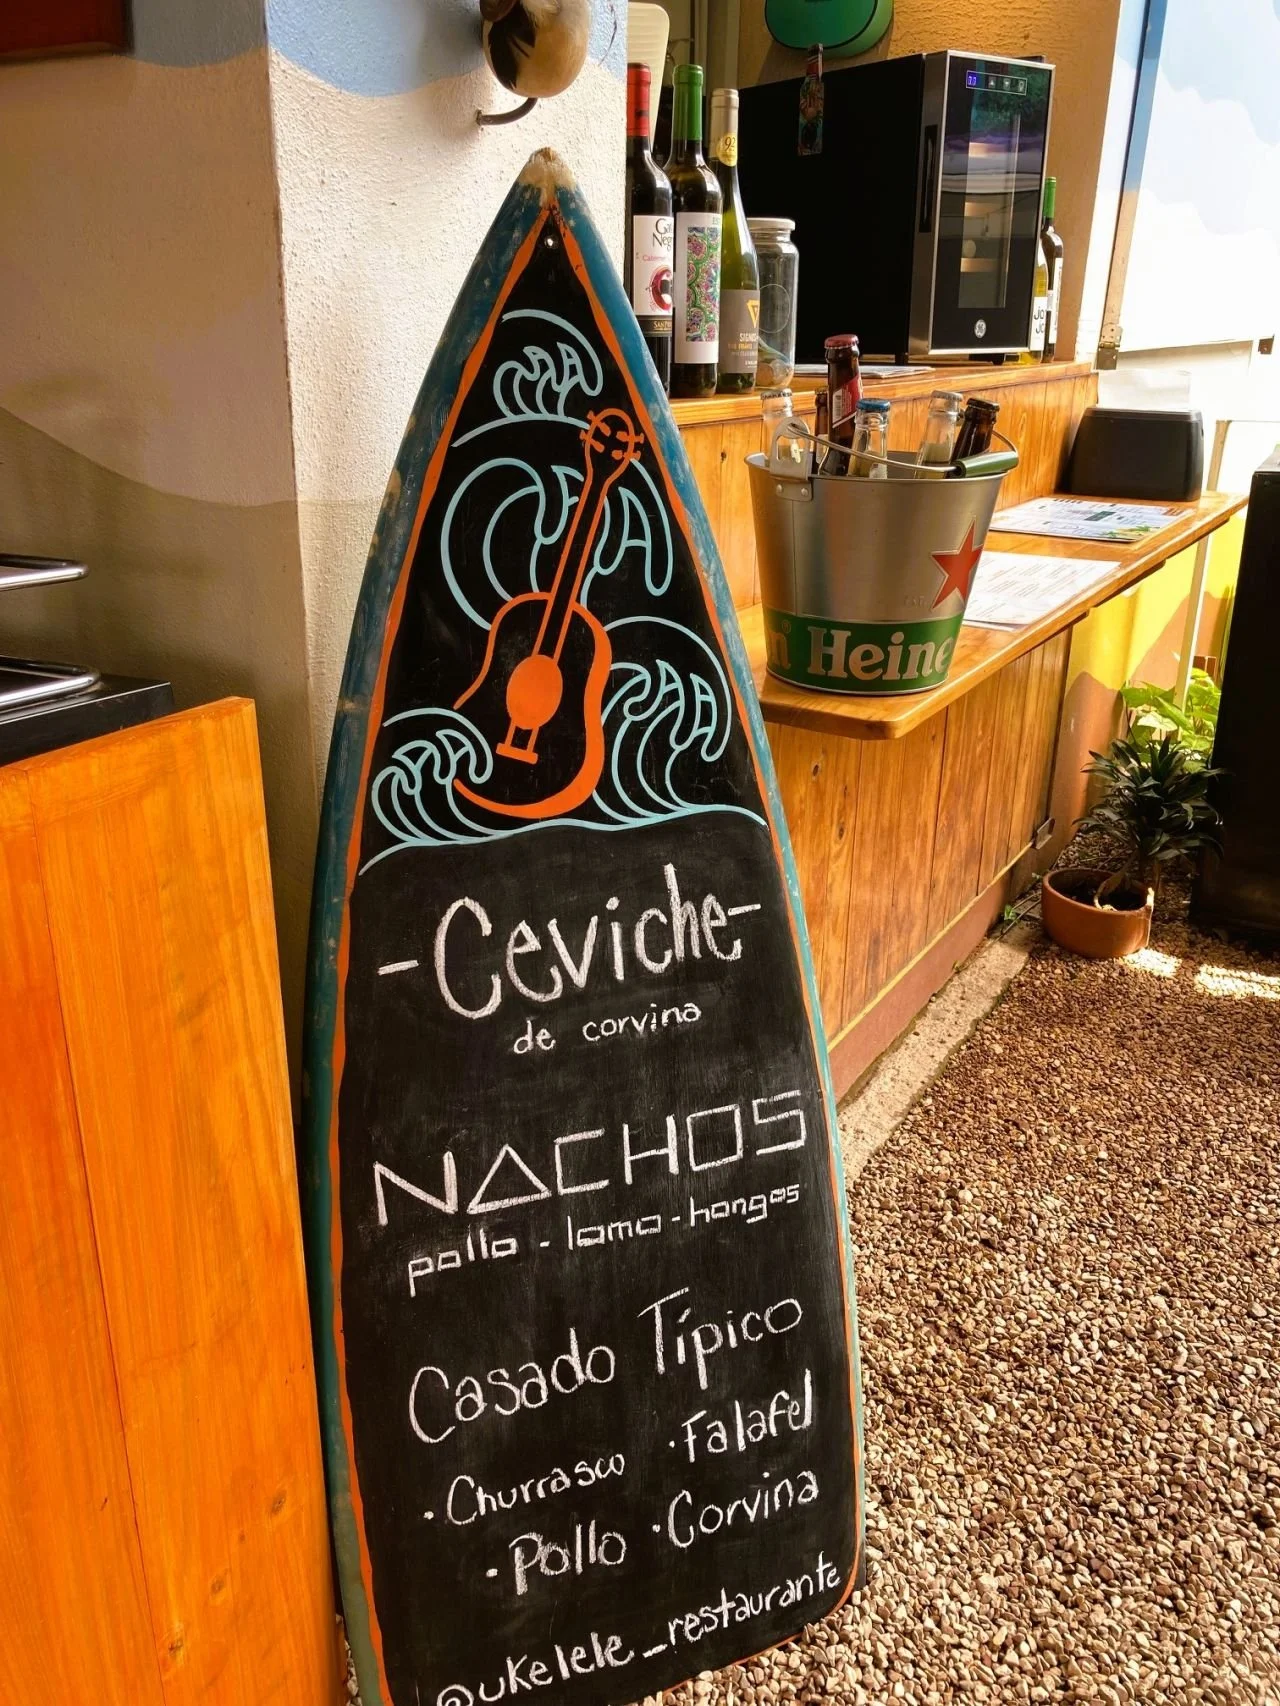 -Ceviche-
de corvina
NACHOS
pollo - lomo - hongos
Casado Típico
· Churrasco · Falafel
· Pollo · Corvina
@ukelele_restaurante
Heine
92